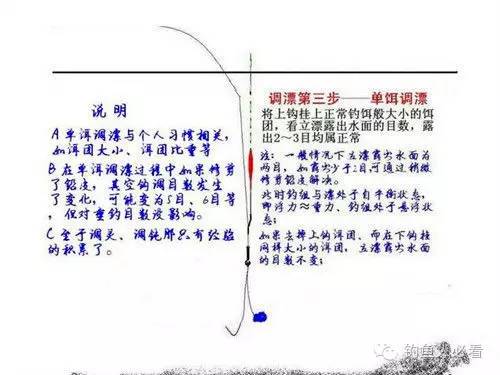 说明
A 单饵调漂与个人习惯相关,
如饵团大小、饵团比重等
B 在单饵调漂过程中如果修剪
了铅皮,真空钩调目数发生
了变化,可能变为5目、6目等
,但对垂钓目数没影响。
C 至于调灵、调钝那只有经验
的积累了。
调漂第三步——单饵调漂
将上钩挂上正常钓饵般大小的饵
团,看立漂露出水面的目数,露
出2~3目均属正常
注:一般情况下立漂露出水面为
两目,如露出少于2目可通过稍微
修剪铅皮解决。
此时钓组与漂处于自平衡状态,
即浮力≈重力、钓组处于悬浮状
态;
如果去掉上钩饵团、而在下钩挂
同样大小的饵团,立漂露出水面
的目数不变;
钓鱼人必看